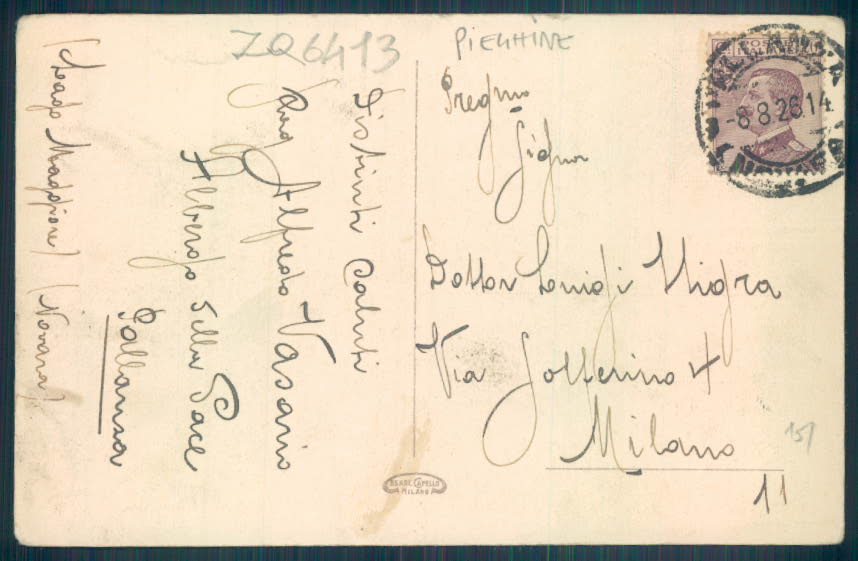 ZQ6413
PIEGHINE
Distinti Saluti
Rag Alfredo Vasario
Albergo della Pace
Pallanza
(Lago Maggiore) (Novara)
Pregmo
Signor
Dottor Luigi Nigra
Via Solferino 7
Milano
11
151
-8 8 26.14
CAPELLO
MILANO